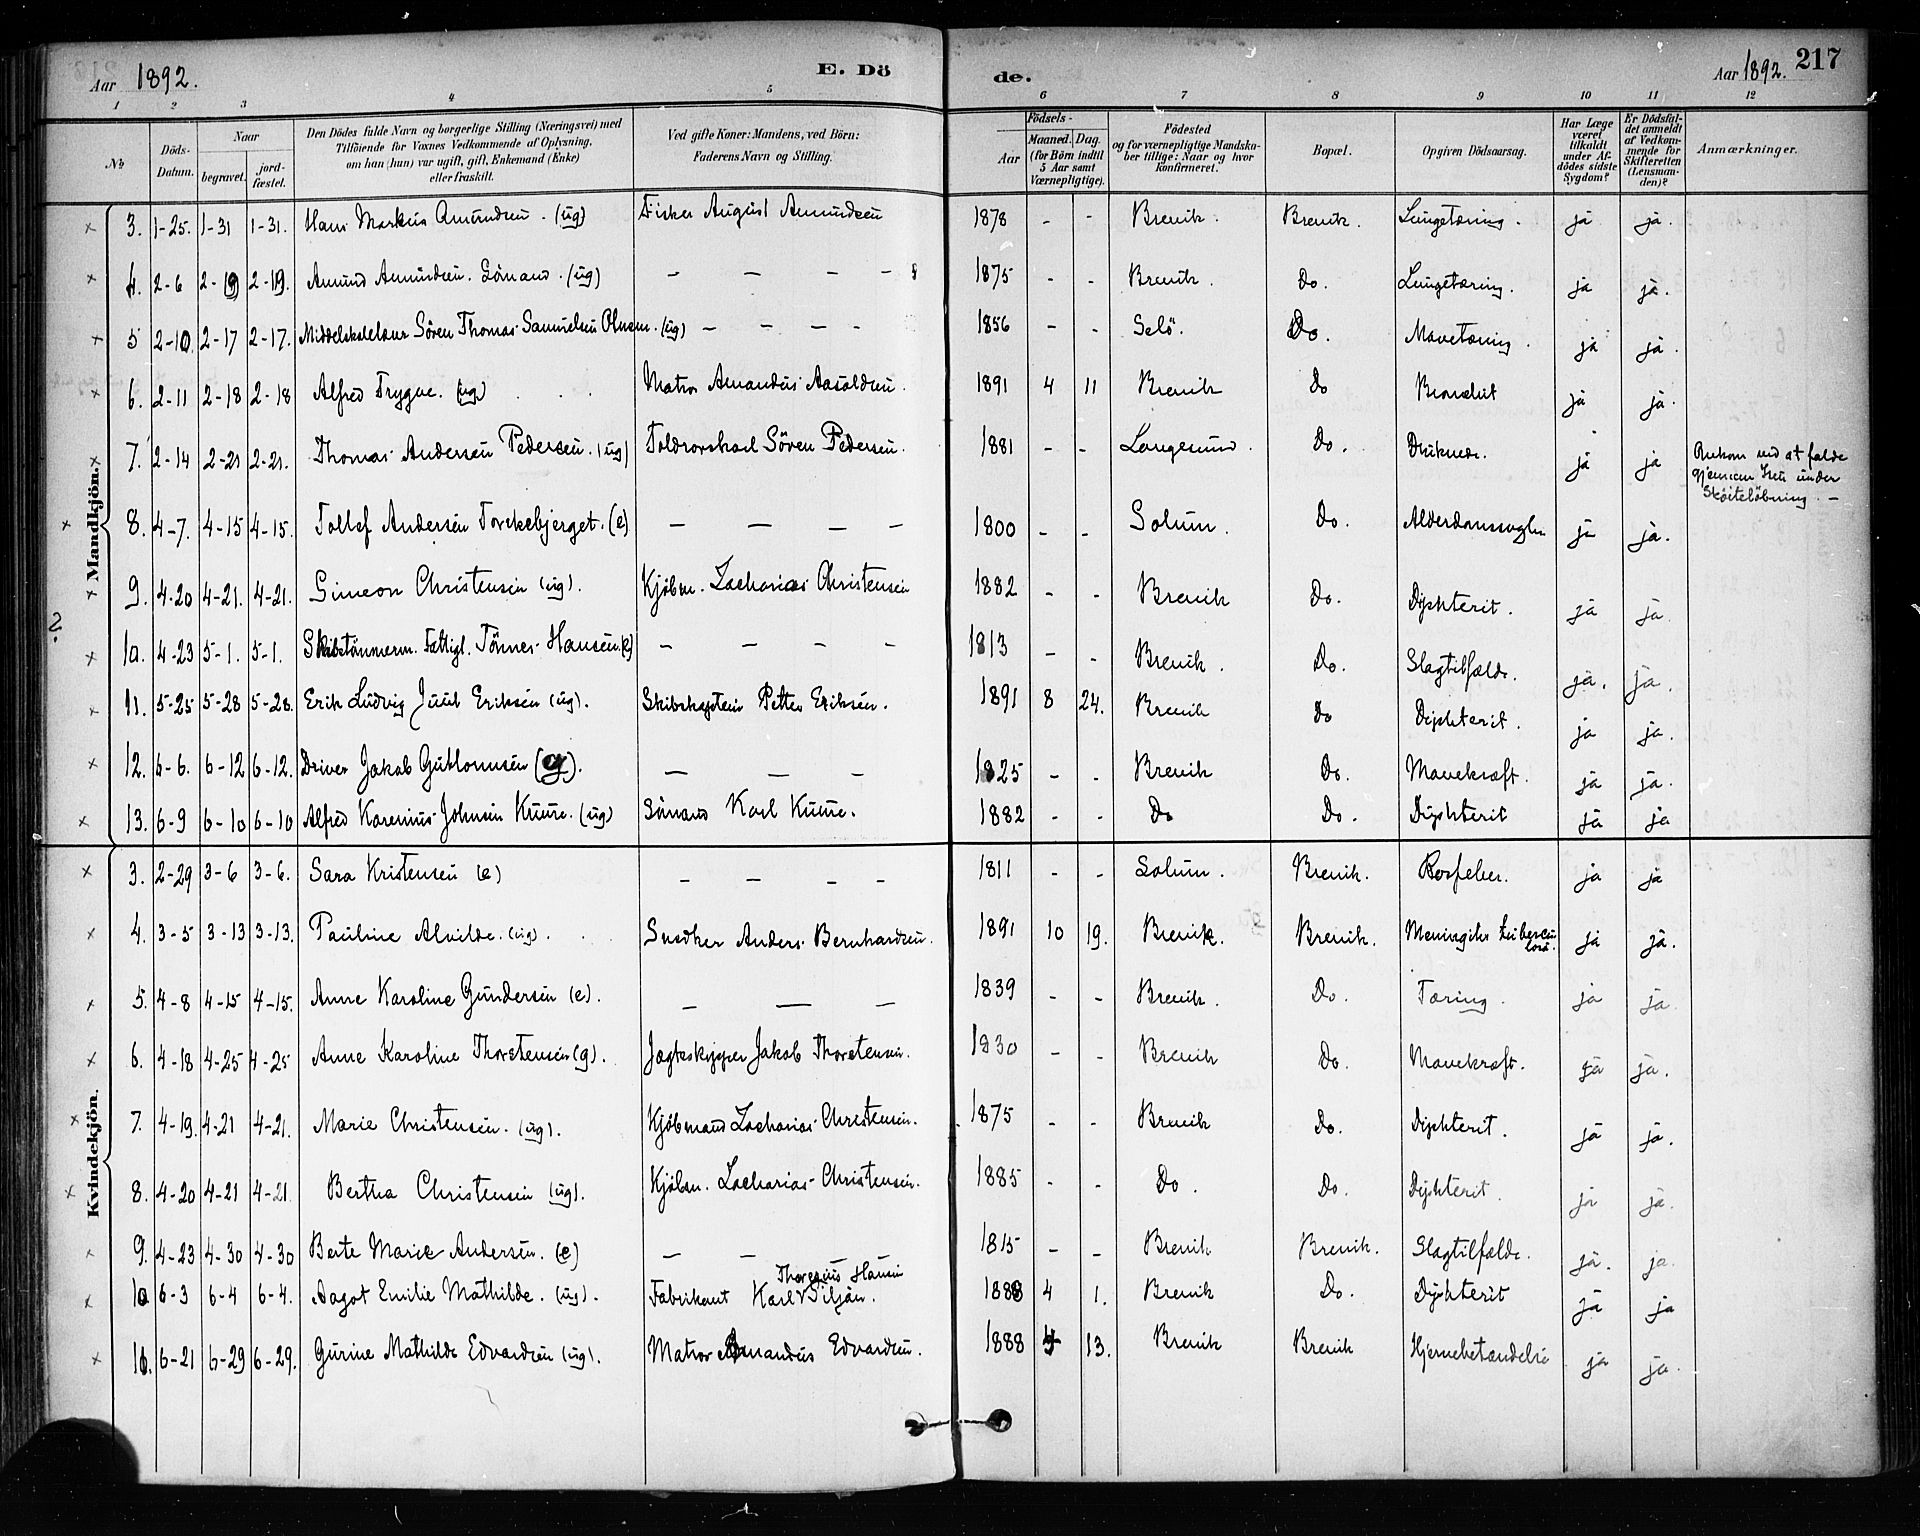 Aar 1892. E. Dö de. Aar 1892. 217
1 2 3 4 5 6 7 8 9 10 11 12
No Döds-Datum. Naar begravet. jordfæstet. Den Dödes fulde Navn og borgerlige Stilling (Næringsvei) med Tilföiende for Voxnes Vedkommende af Oplysning, om han (hun) var ugift, gift, Enkemand (Enke) eller fraskilt. Ved gifte Koner: Mandens, ved Börn: Faderens Navn og Stilling. Födsels- Aar Maaned. Dag. (for Börn indtil 5 Aar samt Værnepligtige). Födested og for værnepligtige Mandskaber tillige: Naar og hvor konfirmeret. Bopæl. Opgiven Dödsaarsag. Har Læge været tilkaldt under Afdödes sidste Sygdom? Er Dödsfaldet anmeldt af Vedkommende for Skifteretten (Lensmanden)? Anmærkninger.
Mandkjön.
3. 1-25. 1-31 1-31. Hans Markus Amundsen. (ug) Fisker August Amundsen 1878 - - Brevik. Brevik. Lungetæring. ja ja.
4. 2-6 2-19 2-19. Amund Amundsen. Sömand. (ug) — — — — 1875 - - Brevik. Do. Lungetæring. ja ja.
5 2-10. 2-17 2-17. Middelskolelærer Sören Thomas Samuelsen (ug) — — — — 1856 - - Selö. Do. Mavetæring. ja ja.
6. 2-11 2-18 2-18 Alfred Trygve. (ug) Matros Amandus 1891 4 11 Brevik Do ja ja.
7. 2-14 2-21 2-21. Thomas Andersen Pedersen. (ug) Toldrorskarl Sören Pedersen. 1881 - - Langesund. Do. Druknede. ja ja Omkom ved at falde
gjennem Isen under
Sköiteløbning. —
8. 4-7. 4-15 4-15. Tollef Andersen Torskebjerget. (e) — — — — 1800 - - Solum. Do. ja ja.
9. 4-20 4-21. 4-21. Simeon Christensen (ug). Kjöbm. Zacharias Christensen 1882 - - Brevik Do. Dyphterit. ja ja
2.
10. 4-23 5-1. 5-1. Skibstömmerm. Fattigl. Tönnes Hansen. (e) — — — — 1813 - - Brevik. Do. Slagtilfælde. ja. ja.
11. 5-25 5-28 5-28. Erik Ludvig Juul Eriksen (ug). Skibskaptein Petter Eriksen. 1891 8 24. Brevik Do Dyphterit. ja ja.
12. 6-6. 6-12 6-12. Driver Jakob Guttormsen (g). — — — 1825 - - Brevik Do. Mavekræft. ja ja.
13. 6-9 6-10 6-10 Alfred Karenius Johnsen (ug) Sömand Karl 1882 - - Do Do. Dyphterit ja ja
Kvindekjön.
3. 2-29 3-6 3-6. Sara Kristensen (e) — — — — 1811 - - Solum. Brevik. ja ja
4. 3-5 3-13 3-13. Pauline Alvilde. (ug). Snedker Anders Bernhardsen. 1891 10 19. Brevik. Brevik. Meningitis tubercu
losa. ja ja.
5. 4-8 4-15 4-15. Anne Karoline Gundersen (e). — — — 1839 - - Brevik. Do. Tæring. ja ja.
6. 4-18 4-25 4-25 Anne Karoline Thorstensen (g). Jagtskipper Jakob Thorstensen. 1830 - - Brevik Do. Mavekræft. ja ja.
7. 4-19. 4-21 4-21. Marie Christensen. (ug). Kjöbmand Zacharias Christensen. 1875 - - Brevik Do. Dyphterit. ja ja.
8. 4-20 4-21 4-21. Bertha Christensen (ug). Kjöbm. Zacharias Christensen. 1885 - - Do. Do. Dyphterit. ja ja.
9. 4-23 4-30 4-30 Berte Marie Andersen. (e) — — 1815 - - Brevik Brevik. Slagtilfælde. ja. ja.
Thoresius Hansen
10 6-3 6-4 6-4. Aagot Emilie Mathilde. (ug). Fabrikant Karl Siljan. 1888 4 1. Brevik Do. Dyphterit ja ja
11. 6-21 6-29 6-29. Gurine Mathilde Edvardsen (ug). Matros Amandus Edvardsen. 1888 13. Brevik Brevik Hjernebetændelse ja ja.